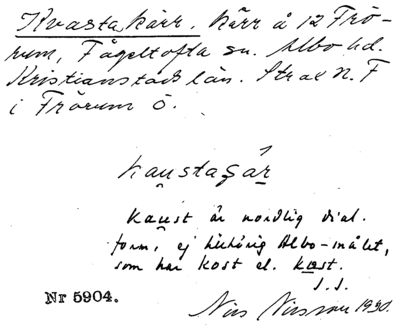 Kvastakärr. Kärr å 12 Frö-
rum, Fågeltofta sn. Albo hd.
Kristianstads län. Strax N. F
i Frörum ö.
kaustaʒár
kaust är nordlig dial.
form, ej hithörig Albo-målet,
som har kost el. kast.
J. J.
Nr 5904.
Nils Nilsson 1930.